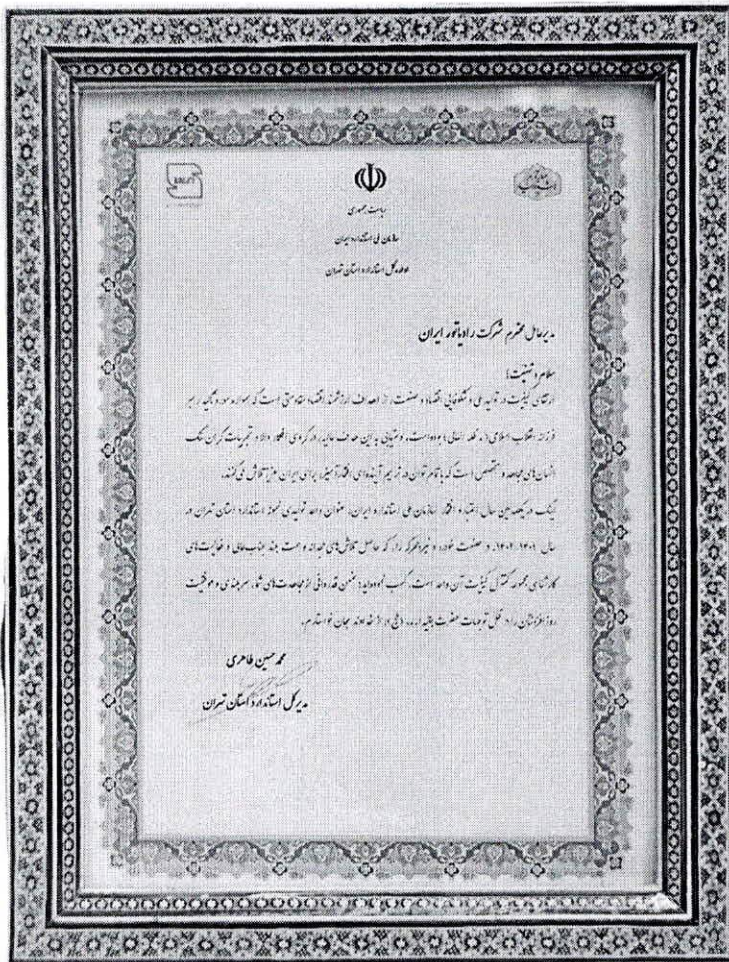 ریاست جمهوری
سازمان ملی استاندارد ایران
اداره کل استاندارد استان تهران
مدیرعامل محترم شرکت رادیاتور ایران
سلام و تهنیت؛
ارتقای کیفیت در تولید ملی و شکوفایی اقتصاد و صنعت، از اهداف ارزشمند اقتصاد مقاومتی است که همواره مورد تأکید رهبر
فرزانه انقلاب اسلامی (مد ظله العالی) بوده است. دستیابی به این هدف عالیه، در گروی افکار والا و تجربیات گران سنگ
انسان‌های مجاهد و متخصص است که با تمام توان در ترسیم آینده‌ای افتخارآمیز برای ایران عزیز تلاش می‌کنند.
اینک در یکصدمین سال اعتبار و افتخار سازمان ملی استاندارد ایران، عنوان واحد تولیدی نمونه استاندارد استان تهران در
سال ۱۴۰۱-۱۴۰۲، در صنعت خودرو و نیرو محرکه را، که حاصل تلاش‌های مجدانه و همت بلند جنابعالی و فعالیت‌های
کارشناسی مجموعه کنترل کیفیت آن واحد است، کسب نموده‌اید؛ ضمن قدردانی از مجاهدت‌های شما، سربلندی و موفقیت
روزافزونتان را در ظل توجهات حضرت بقیه ا... (عج) از خداوند سبحان خواستارم.
محمد حسین طاهری
مدیرکل استاندارد استان تهران